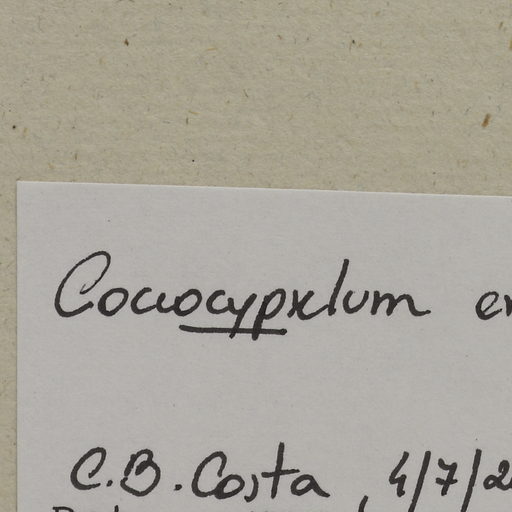 Coccocypselum er
C.B. Costa, 4/7/2